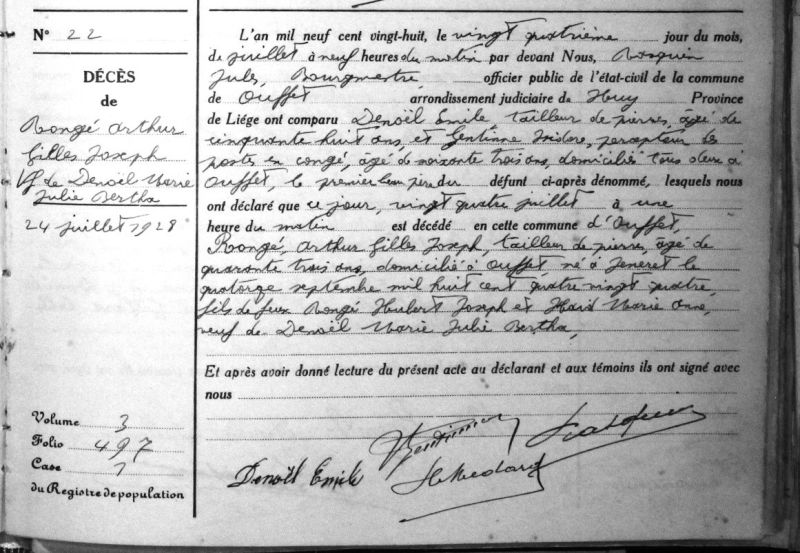 N° 22
DÉCÈS
de
Rongé Arthur
Gilles Joseph
Vf de Denoël Marie
Julie Bertha
24 juillet 1928
Volume 3
Folio 497
Case 7
du Registre de population
L'an mil neuf cent vingt-huit, le vingt quatrième jour du mois,
de juillet à neuf heures du matin par devant Nous,
Jules, Bourgmestre officier public de l'état-civil de la commune
de Ouffet arrondissement judiciaire de Huy Province
de Liége ont comparu Denoël Emile tailleur de pierres, âgé de
cinquante huit ans, et Gentinne Isidore, percepteur des
postes en congé, âgé de soixante trois ans, domiciliés tous deux à
Ouffet, le premier beau père du défunt ci-après dénommé, lesquels nous
ont déclaré que ce jour, vingt quatre juillet à une
heure du matin est décédé en cette commune d'Ouffet,
Rongé, Arthur Gilles Joseph, tailleur de pierres, âgé de
quarante trois ans, domicilié à Ouffet né à Jeneret le
quatorze septembre mil huit cent quatre vingt quatre
fils de feux Rongé Hubert Joseph et Marie Anne,
veuf de Denoël Marie Julie Bertha,
Et après avoir donné lecture du présent acte au déclarant et aux témoins ils ont signé avec
nous
Denoël Emile